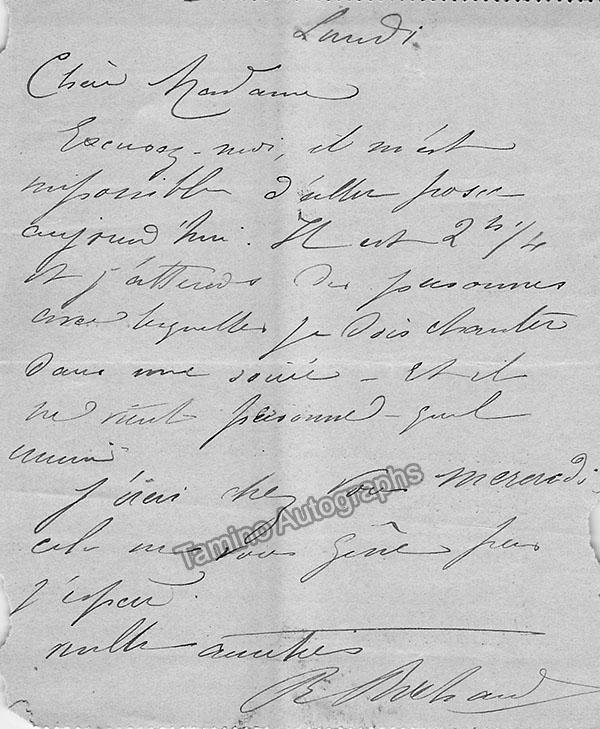 Lundi
Chère Madame
Excusez-moi, il m'est
impossible d'aller poser
aujourd'hui. Il est 2 h 1/4
et j'attends des personnes
avec lesquelles je dois chanter
dans une soirée - Et il
ne vient personne - quel
ennui
J'irai chez vous mercredi,
cela ne vous gêne pas
j'espère.
mille amitiés
Tamino Autographs